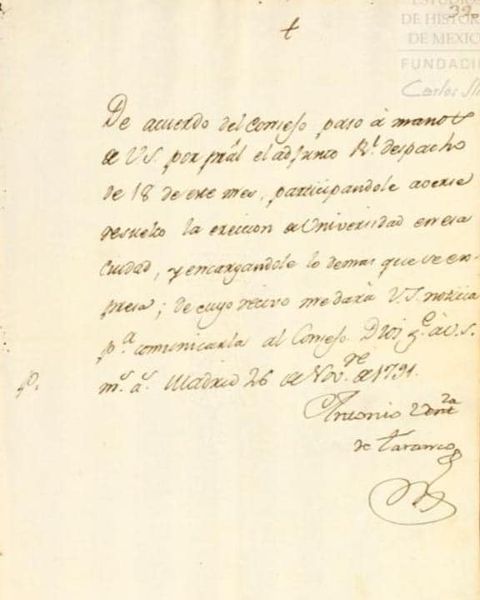 39
ESTUDIOS
DE HISTORIA
DE MEXICO
FUNDACIÓN
Carlos Sl
De acuerdo del Consejo paso à manos
de V.S. por pral el adjunto Rl. despacho
de 18 de este mes, participandole averse
resuelto la ereccion de Universidad en esa
Ciudad, y encargandole lo demas que se ex-
presa; de cuyo recivo me dará V.S. noticia
pa. comunicarla al Consejo. Dios ge. à V.S.
ms. as. Madrid 26 de Novre. de 1791.
Antonio Venta
de Taranco
P.